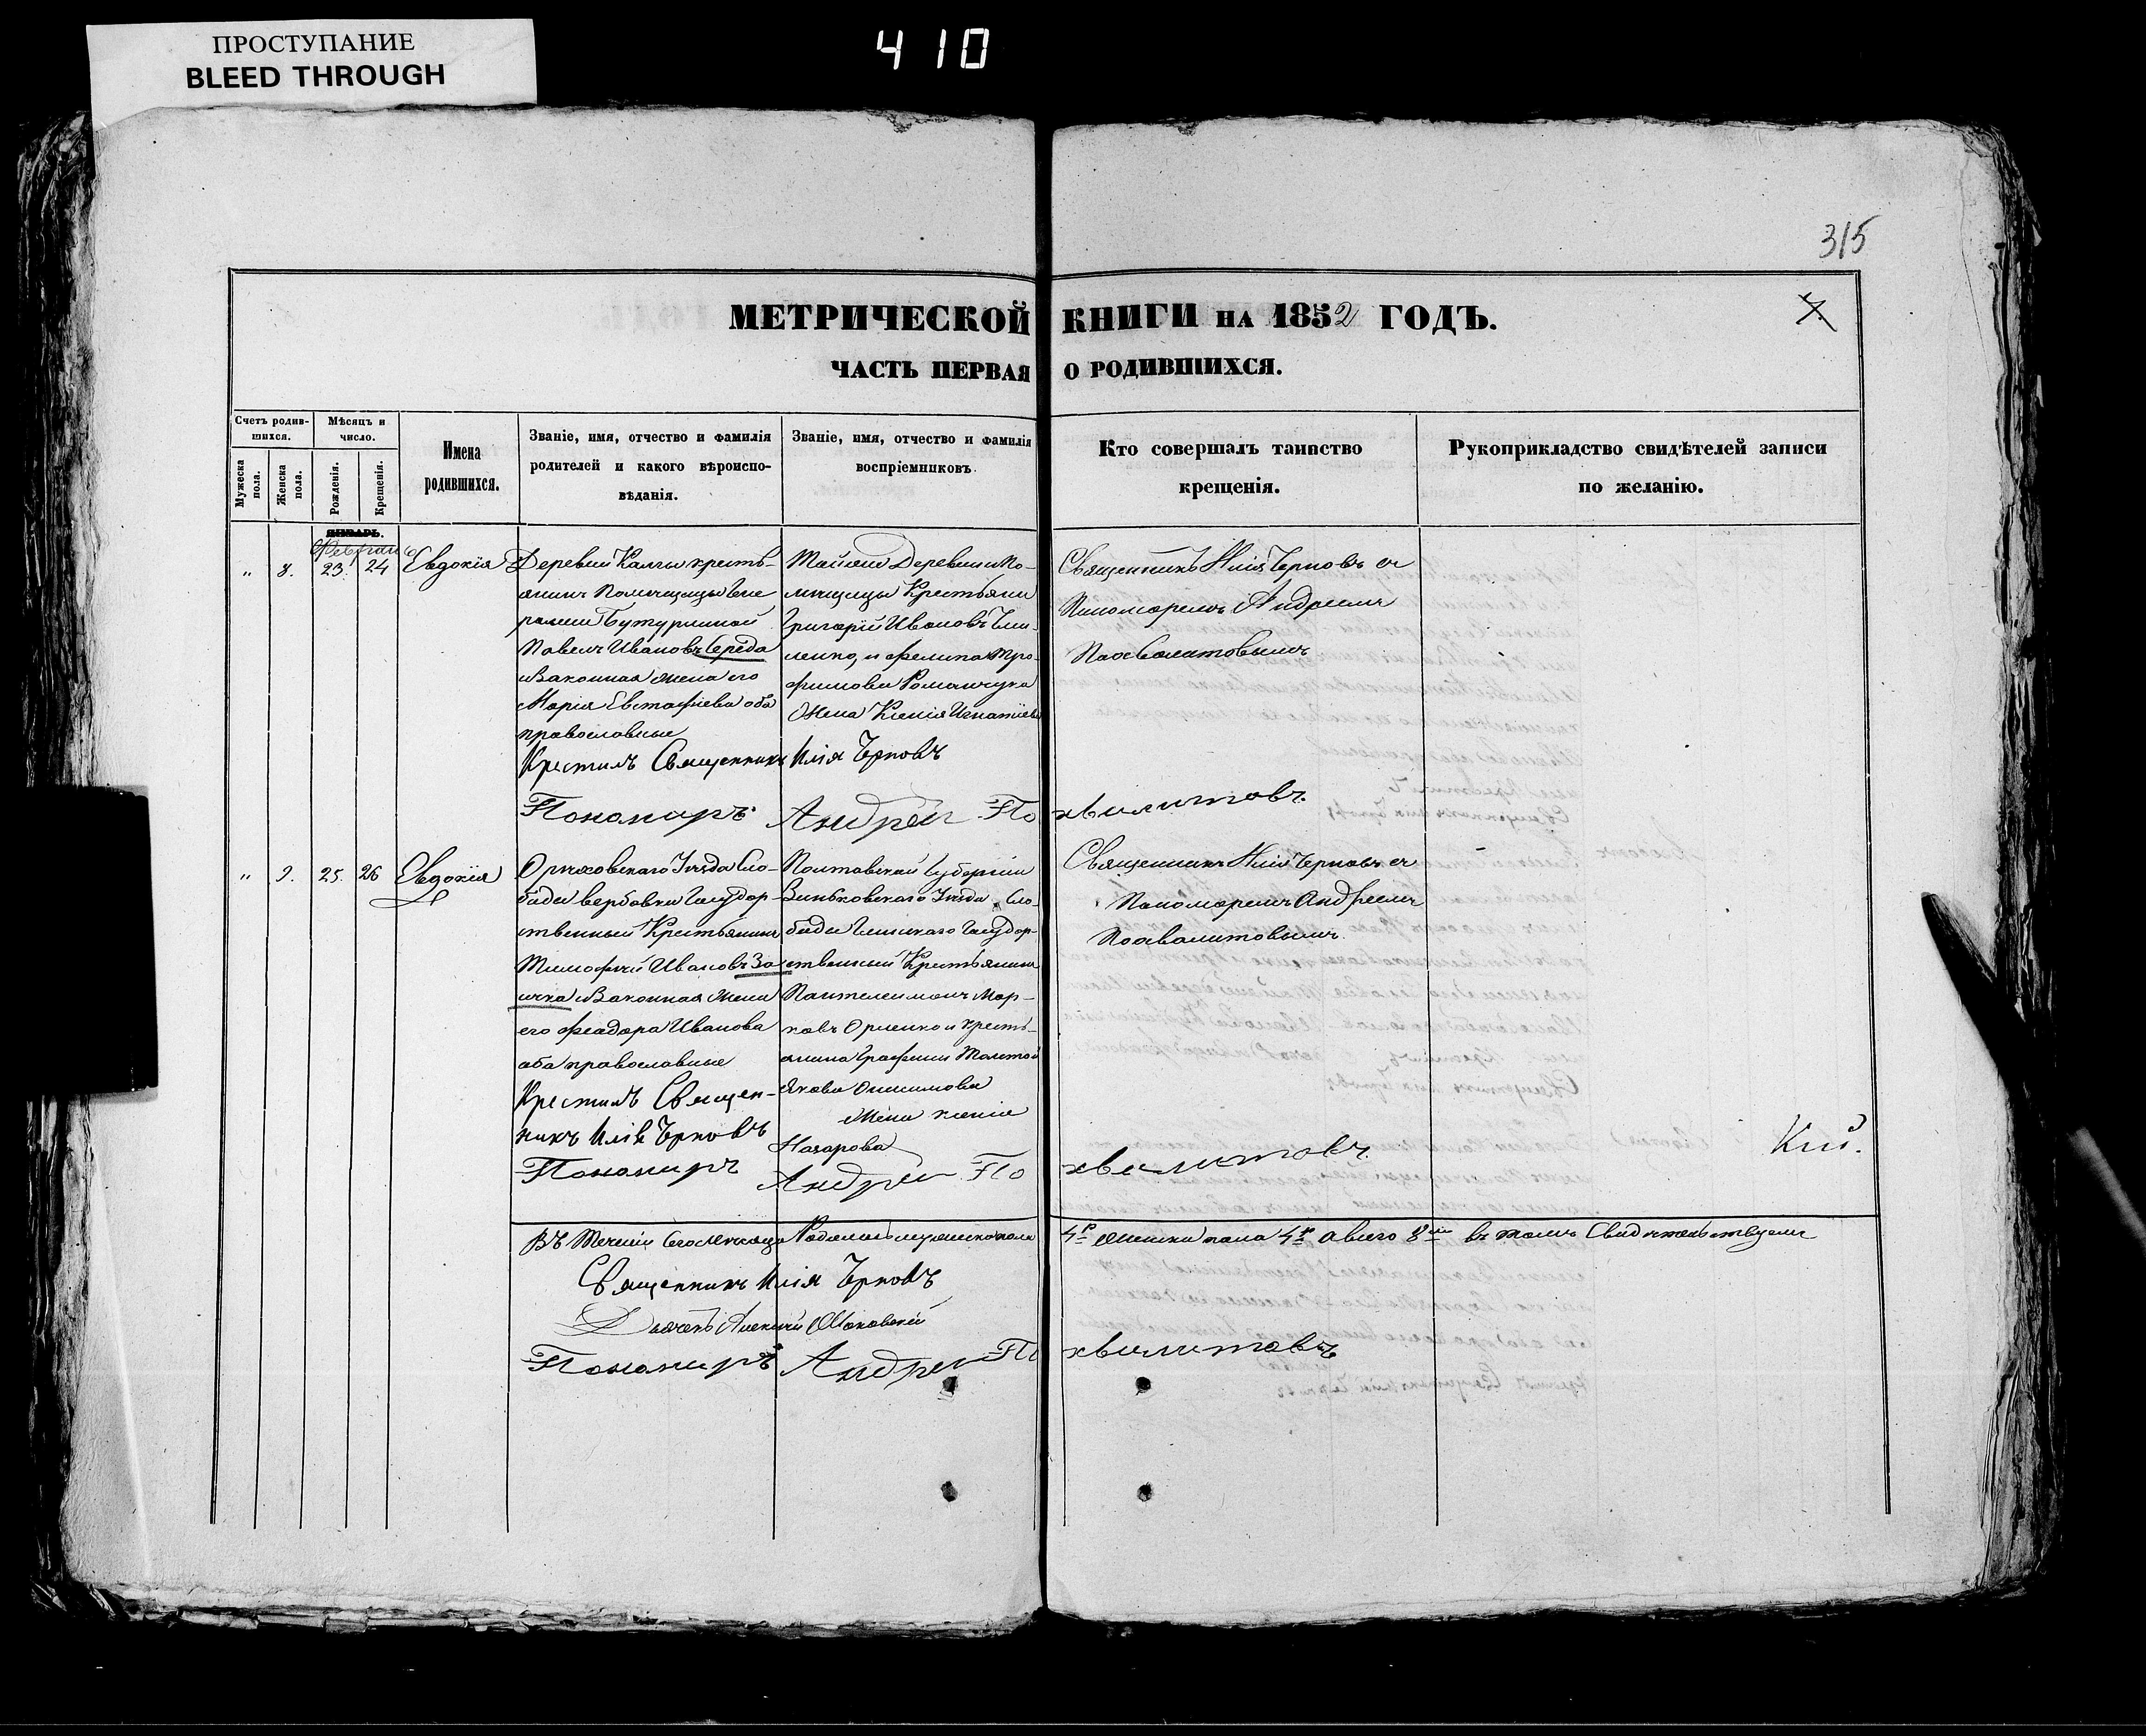 ПРОСТУПАНИЕ
BLEED THROUGH
410
315
МЕТРИЧЕСКОЙ КНИГИ НА 1852 ГОДЪ.
7.
ЧАСТЬ ПЕРВАЯ О РОДИВШИХСЯ.
Счетъ родив-
шихся.
Мужеска
пола.
Женска
пола.
Мѣсяцъ и
число.
Рожденія.
Крещенія.
Имена
родившихся.
Званіе, имя, отчество и фамилія
родителей и какого вѣроиспо-
вѣданія.
Званіе, имя, отчество и фамилія
воспріемниковъ.
Кто совершалъ таинство
крещенія.
Рукоприкладство свидѣтелей записи
по желанію.
ЯНВАРЬ.
„ 8. 23. 24 Евдокія
Деревни Калги кресть-
янинъ Помѣщицы Гене
ральши Бутурлиной
Павелъ Ивановъ Середа
и Законная жена его
Марія Евстафіева оба
православные
Крестилъ Священникъ Илія Черновъ
Тойже Деревни и По-
мѣщицы Крестьяни
Григорій Ивановъ
ленко, и Филипа Тро-
фимова Романчука
Жена Ксенія Игнатіева
Священникъ Илія Черновъ съ
Пономаремъ Андреемъ
Похвалитовымъ
Пономарь Андрей Похвалитовъ
„ 9. 25. 26 Евдокія
Орѣховскаго Уѣзда Сло-
боды Вербовки Государ-
ственный Крестьянинъ
Тимофѣй Ивановъ За-
ичка и Законная жена
его Феодора Иванова
оба православные
Крестилъ Священ-
никъ Илія Черновъ
Полтавской Губерніи
Зиньковскаго Уѣзда Сло-
боды Государ-
ственный Крестьянинъ
Пантелеимонъ Мар-
ковъ и кресть-
янина Графини Толстой
Якова Онисимова
Жена Ксенія
Назарова
Священникъ Илія Черновъ съ
Пономаремъ Андреемъ
Похвалитовымъ
Пономарь Андрей Похвалитовъ
Въ Теченіи Сего мѣсяца Родилось мужеска пола 4 женска пола 4 а всего 8 въ томъ Свидѣтельствуемъ
Священникъ Илія Черновъ
Дьячекъ Алексѣй
Пономарь Андрей Похвалитовъ